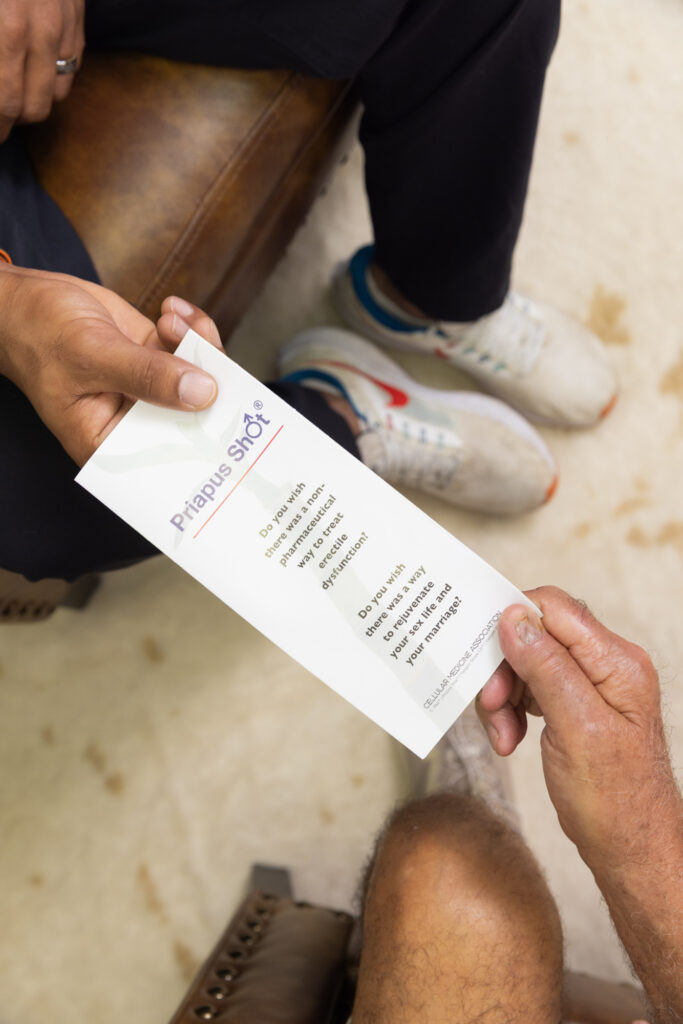 Priapus Shot®
Do you wish
there was a non-
pharmaceutical
way to treat
erectile
dysfunction?
Do you wish
there was a way
to rejuvenate
your sex life and
your marriage?
CELLULAR MEDICINE ASSOCIATION